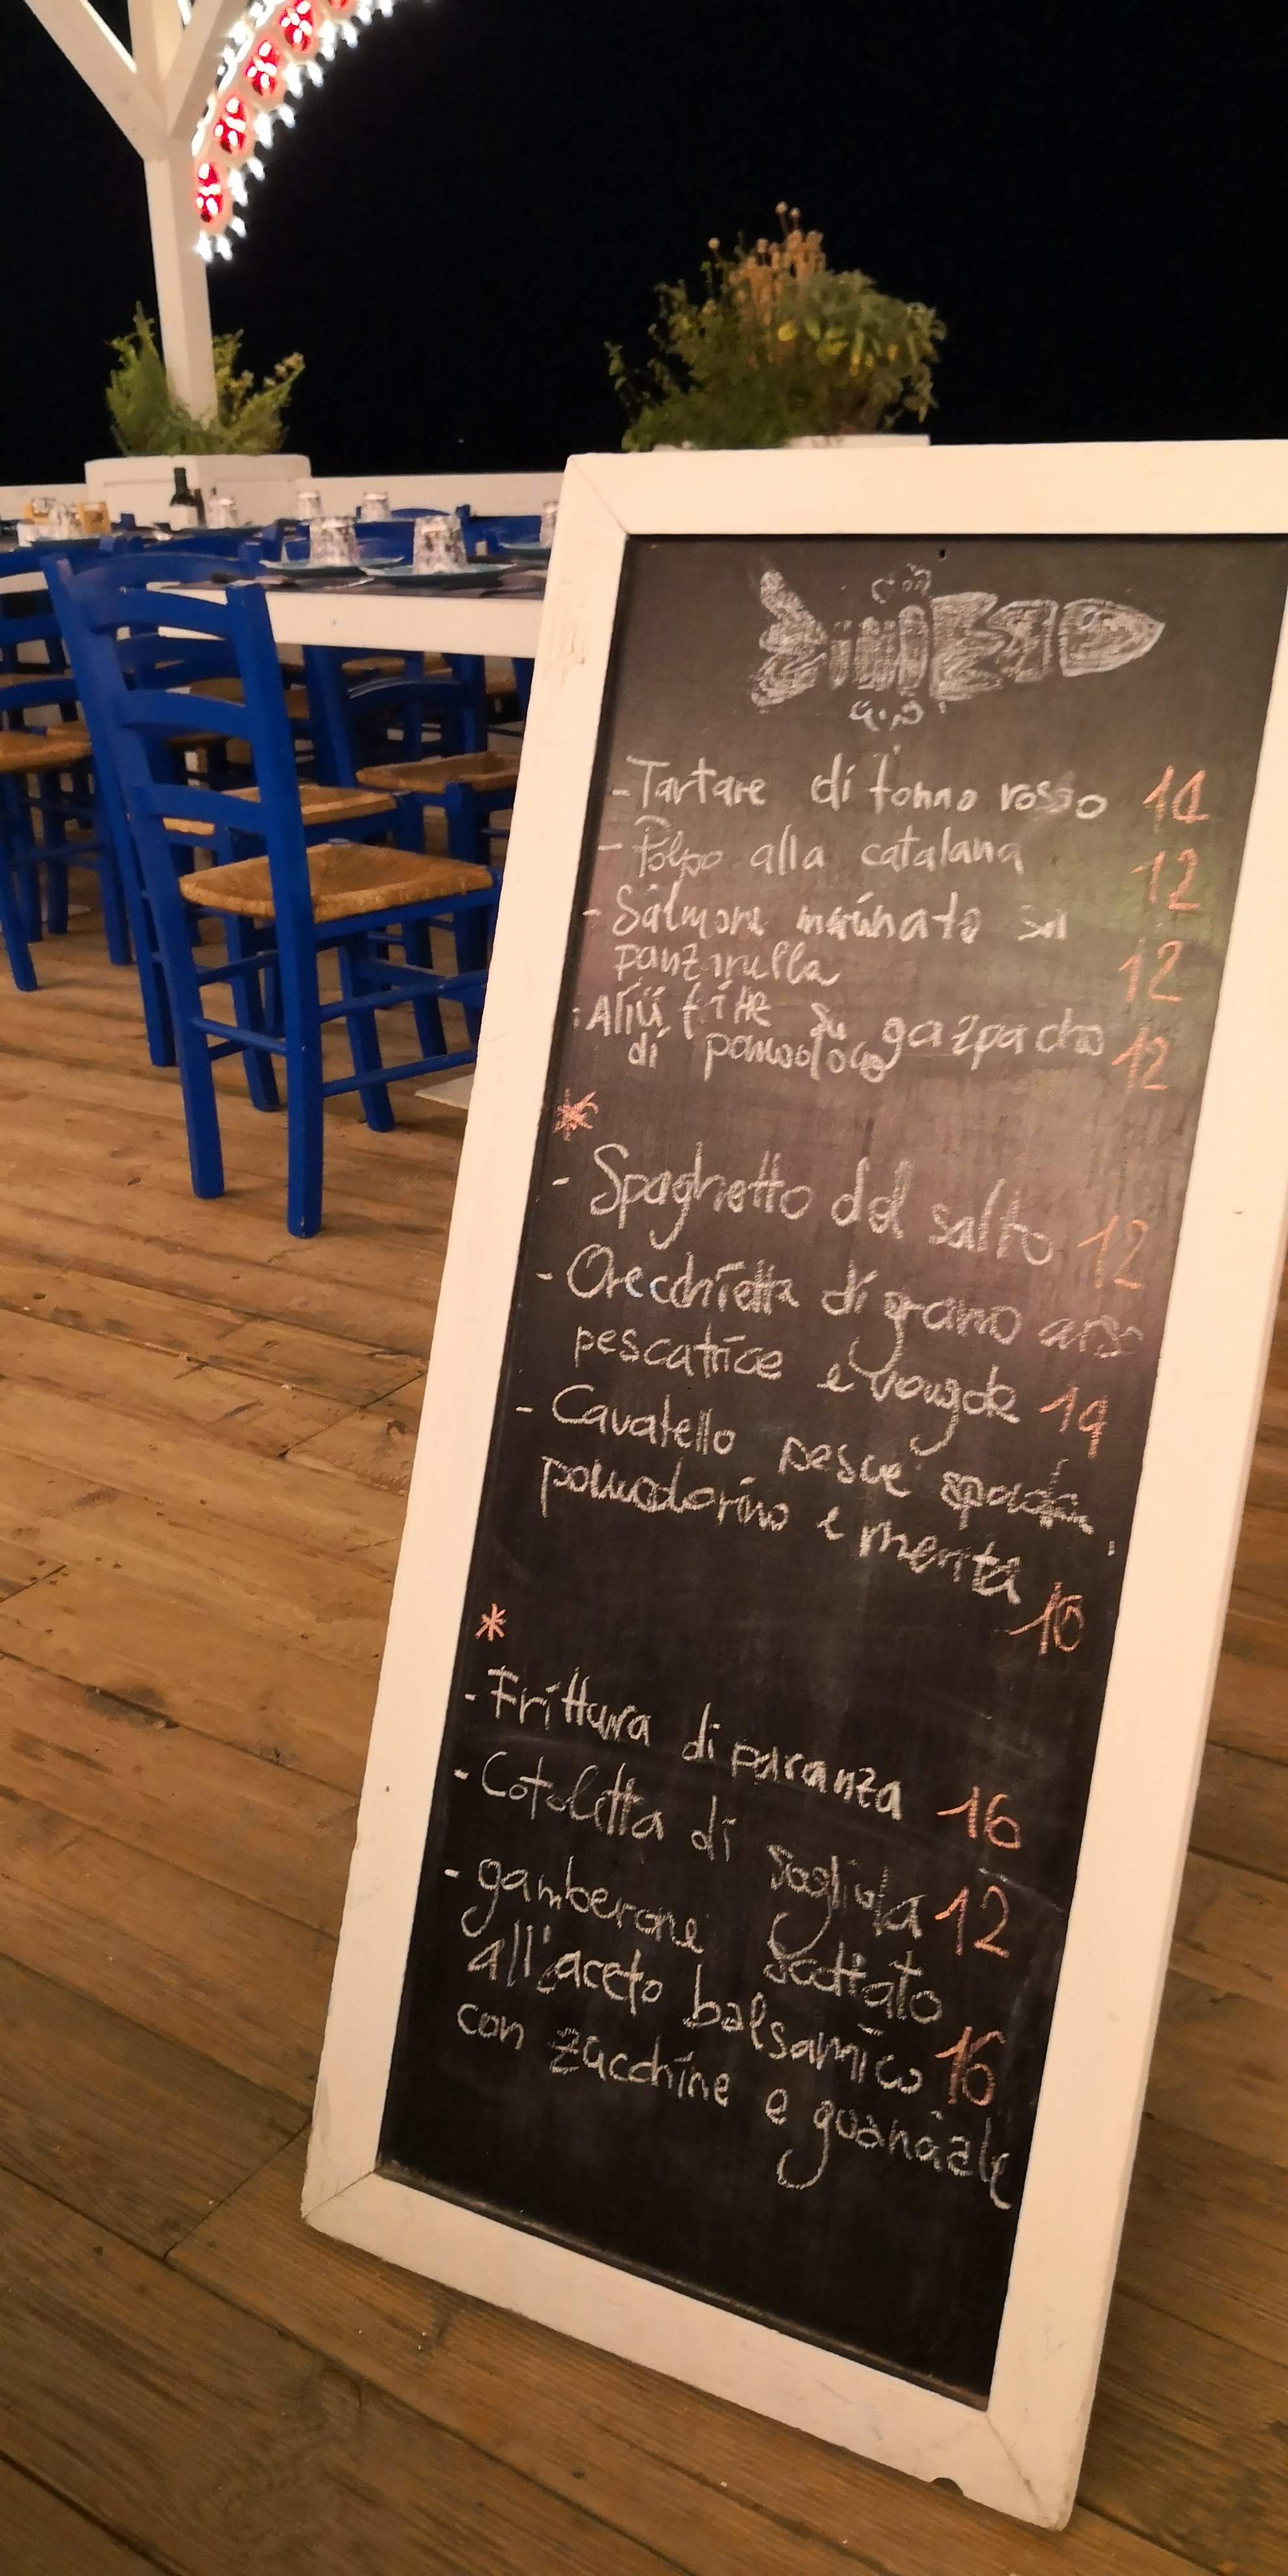 - Tartare di tonno rosso 14
- Polpo alla catalana 12
- Salmone marinato su
panzanella 12
- Alici fritte su gazpacho
di pomodoro 12
*
- Spaghetto del salto 12
- Orecchiette di grano arso
pescatrice e vongole 14
- Cavatello pesce spada,
pomodorino e menta
10
*
- Frittura di paranza 16
- Cotoletta di sogliola 12
- gamberone scottato
all'aceto balsamico 16
con zucchine e guanciale